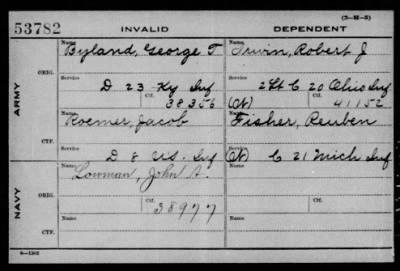 (3-H-3)
53782 INVALID DEPENDENT
Name Name
Byland, George T Irwin, Robert J
ORIG. Service Service
D 23 Ky Inf 2 Lt C 20 Ohio Inf
Ctf. Ctf.
38356 (Ct) 41152
ARMY
Name Name
Roemer, Jacob Fisher, Reuben
CTF. Service Service
D 8 U.S. Inf (Ct) C 21 Mich Inf
NAVY
Name Name
Lowman, John A.
ORIG. Ctf. Ctf.
38977
Name Name
CTF.
6-1302